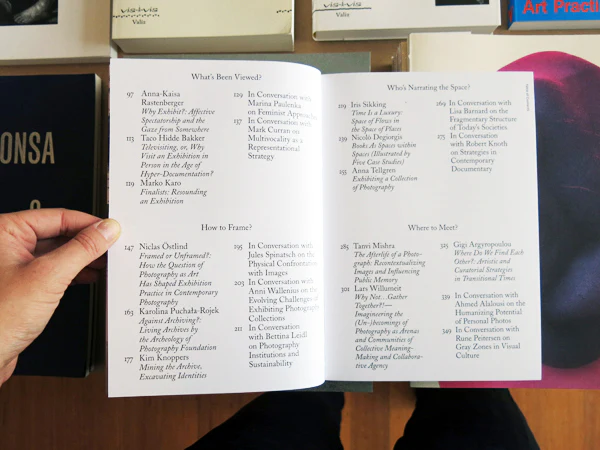 vis-à-vis
Valiz
vis-à-vis
Valiz
Art Practi
ONSA
What's Been Viewed?
97 Anna-Kaisa
Rastenberger
Why Exhibit?: Affective
Spectatorship and the
Gaze from Somewhere
113 Taco Hidde Bakker
Televisiting, or, Why
Visit an Exhibition in
Person in the Age of
Hyper-Documentation?
119 Marko Karo
Finalists: Resounding
an Exhibition
129 In Conversation with
Marina Paulenka
on Feminist Approaches
137 In Conversation with
Mark Curran on
Multivocality as a
Representational
Strategy
How to Frame?
147 Niclas Östlind
Framed or Unframed?:
How the Question of
Photography as Art
Has Shaped Exhibition
Practice in Contemporary
Photography
163 Karolina Puchała-Rojek
Against Archiving?:
Living Archives by
the Archeology of
Photography Foundation
177 Kim Knoppers
Mining the Archive,
Excavating Identities
195 In Conversation with
Jules Spinatsch on the
Physical Confrontation
with Images
203 In Conversation with
Anni Wallenius on the
Evolving Challenges of
Exhibiting Photography
Collections
211 In Conversation
with Bettina Leidl
on Photography
Institutions and
Sustainability
Who's Narrating the Space?
Iris Sikking
Time Is a Luxury:
Space of Flows in
the Space of Places
Nicolò Degiorgis
Books As Spaces within
Spaces (Illustrated by
Five Case Studies)
Anna Tellgren
Exhibiting a Collection
of Photography
In Conversation with
Lisa Barnard on the
Fragmentary Structure
of Today's Societies
In Conversation
with Robert Knoth
on Strategies in
Contemporary
Documentary
Where to Meet?
285 Tanvi Mishra
The Afterlife of a Photo-
graph: Recontextualizing
Images and Influencing
Public Memory
Lars Willumeit
Why Not...Gather
Together?!—
Imagineering the
(Un-)becomings of
Photography as Arenas
and Communities of
Collective Meaning-
Making and Collabora-
tive Agency
325 Gigi Argyropoulou
Where Do We Find Each
Other?: Artistic and
Curatorial Strategies
in Transitional Times
339 In Conversation
with Ahmed Alalousi on the
Humanizing Potential
of Personal Photos
349 In Conversation with
Rune Peitersen on
Gray Zones in Visual
Culture